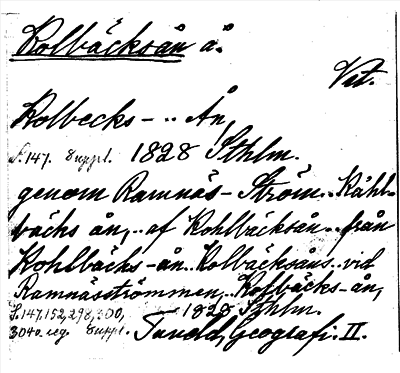 Kolbäcksån å.
Vst.
Kolbecks- .. Ån,
S. 147. Suppl. 1828 Sthlm.
genom Ramnäs-Ström .. Kåhl-
bäcks ån, .. af Kohlbäcksån .. från
Kohlbäcks-ån .. Kolbäcksåns .. vid
Ramnäsströmmen, .. Kolbäcks-ån,
S. 147, 152, 298, 300, — 1828 Sthlm.
304 o. reg. Suppl. Tuneld, Geografi. II.